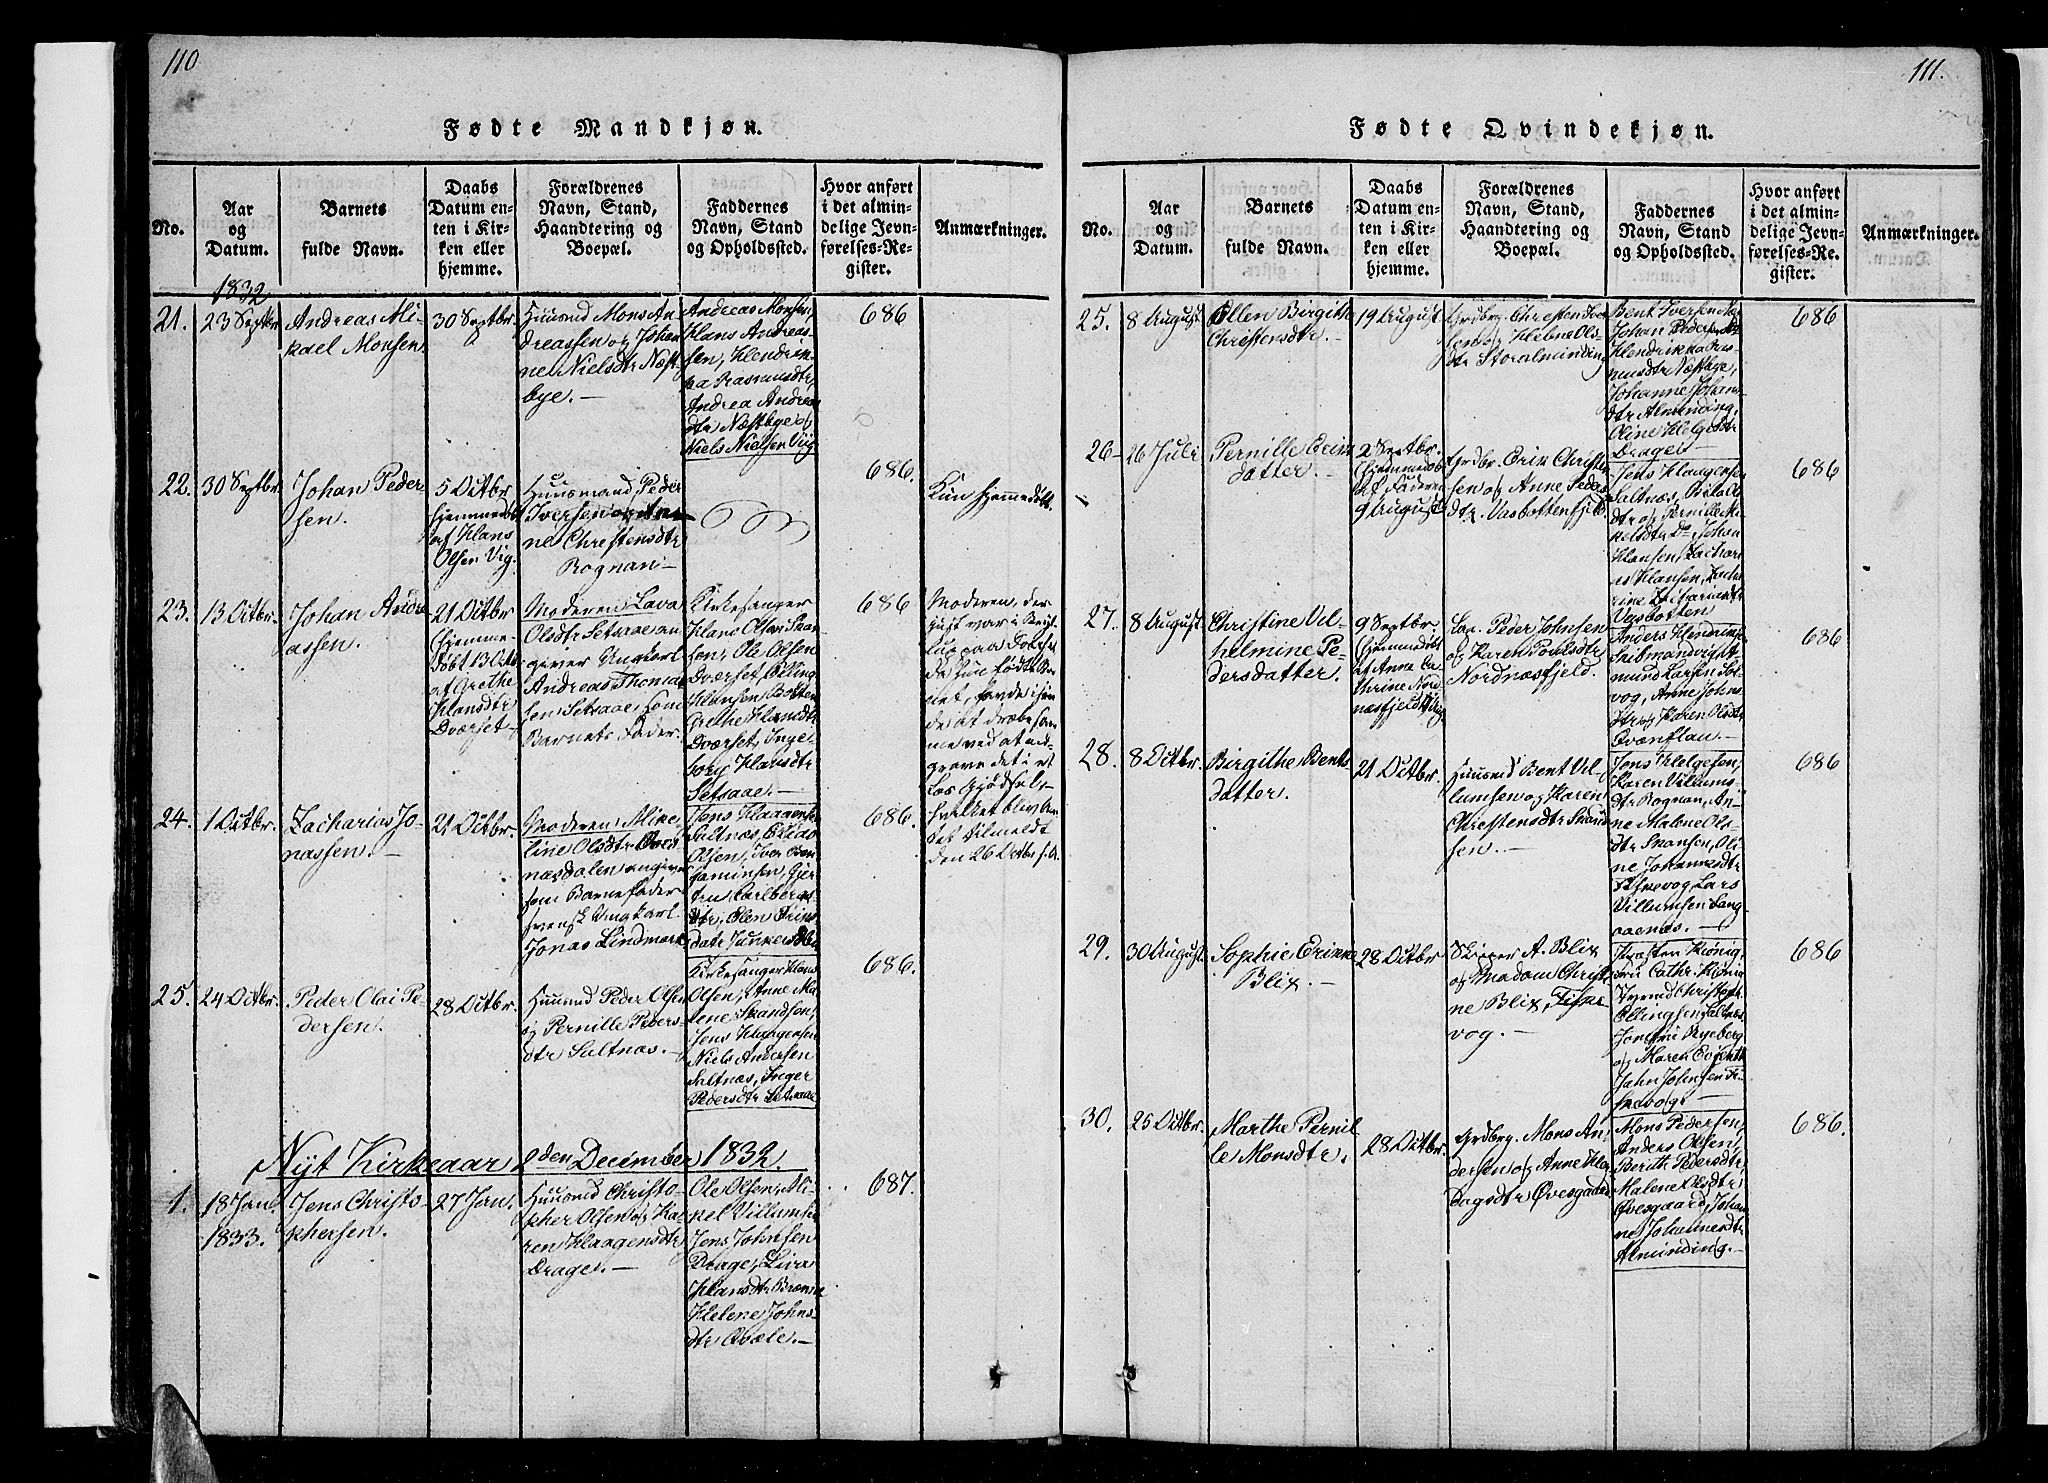 110
Fødte Mandkjøn.
No.
Aar
og
Datum.
Barnets
fulde Navn.
Daabs
Datum en-
ten i Kir-
ken eller
hjemme.
Forældrenes
Navn, Stand,
Haandtering og
Boepæl.
Faddernes
Navn, Stand
og Opholdssted.
Hvor anført
i det almin-
delige Jevn-
førelses-Re-
gister.
Anmærkninger.
1832
21.
23 Septbr
Andreas Mi-
kael Monsen.
30 Septbr.
Huusmd Mons An-
dreassen og Johan-
ne Nielsdtr Næst-
bye.
Andreas Monsen,
Hans Andreas-
sen, Hendrik-
ka Rasmusdtr,
Andrea Andreas
dtr Næstbye og
Niels Nielsen Viig
686
22.
30 Septbr
Johan Peder
sen.
5 Octbr
hjemmedøbt
af Hans
Olsen Vig.
Huusmand Peder
Iversen og An-
ne Christensdtr
Rognan
686.
Kun hjemmedøbt.
23.
13 Octbr.
Johan Andre
assen.
21 Octbr
Hjemme-
døbt 13 Octb
af Grethe
Hansdtr
Dverset
Moderen Lava
Olsdtr Setsaae an-
giver Ungkarl
Andreas Thomas
sen Setsaae, som
Barnets Fader.
Kirkesanger
Hans Olsen Skan-
sen, Ole Olsen
Dverset, Elling
Hansen Botten
Grethe Hansdtr
Dverset, Inge-
borg Hansdtr
Setsaae.
686
Moderen, der
just var i
da hun fødte Bar-
net,
me ved at ned-
grave det i et
hvilket blev
det tilmeldt
den 26 Octbr s. A.
24.
1 Octbr.
Zacharias Jo-
nassen.
21 Octbr.
Moderen Mike-
line Olsdtr
næsdalen angiver
som Barnefader
svensk Ungkarl
Jonas Lindmark
Jens Haagensen
Saltnæs,
Olsen, Iver Ben-
jaminsen, Gjer-
tru Carlberg
dtr, Elen
datr Junkersdal
686.
25.
24 Octbr.
Peder Olai Pe-
dersen.
28 Octbr.
Huusmd Peder Olsen
og Pernille Peders-
dtr Saltnæs.
Kirkesanger Hans
Olsen, Anne Ma-
lene Skandsen,
Jens Haagensen
Niels Andersen
Saltnæs, Inger
Pedersdtr Setsaae
686.
Nyt Kirkeaar 2den December 1832.
1.
18 Jan.
1833.
Jens Christo-
phersen.
27 Jan.
Huusmd Christo-
pher Olsen og Ka-
ren Haagensdtr
Drage.
Ole Olsen, Mi-
kel Villumsen
Jens Johnsen
Drage, Liva
Hansdtr
Helene Johns-
dtr Qvæle.
687.
111.
Fødte Qvindekjøn.
No.
Aar
og
Datum.
Barnets
fulde Navn.
Daabs
Datum en-
ten i Kir-
ken eller
hjemme.
Forældrenes
Navn, Stand,
Haandtering og
Boepæl.
Faddernes
Navn, Stand
og Opholdssted.
Hvor anført
i det almin-
delige Jevn-
førelses-Re-
gister.
Anmærkninger.
25.
8 August
Ellen Birgithe
Christensdtr.
19 August
Grdbrg. Christen Iver
sen og Helene Ols-
dtr Storalminding
Bent Iversen
Johan Pedersen
Hendrikka Ras-
musdtr Næstbye,
Johanne Johans
dtr Alminding,
Oline Helgesdtr
Drage
686
26
26 Juli
Pernille Erics
datter.
2 Septbr.
Hjemmedøbt
af Faderen
9 August
Grdbr. Eric Christen
sen og Anne Peders
dtr. Vasbottenfjeld
Jens Haagensen
Saltnæs,
dtr og Pernille Mi-
kelsdtr Do, Johan
Hansen, Zachari
as Hansen,
rine Zakariasdtr
Vasbotten
686
27.
8 August
Christine Vil-
helmine Pe-
dersdatter.
9 Septbr
Hjemmedøbt
af Anne Ca-
thrine Nord-
næsfjeld
Lap. Peder Johnsen
og Karen Poulsdtr
Nordnæsfjeld.
Anders Hendriksen
mund Larsen Sol-
vog, Anne Johns
dtr og Karen Olsdtr
Qvænflau.
686
28.
8 Octbr.
Birgithe Bents-
datter.
21 Octbr.
Huusmd Bent Vil-
lumsen og Karen
Christensdtr Skand
sen.
Jens Helgesen,
Karen Villums
dtr Rognan, An-
ne Malene Ols-
dtr Skansen, Oli-
ne Johannesdtr
Lars
Villumsen Lang-
aaenæs.
686
29.
30 August.
Sophie Erikke
Blix.
28 Octbr
Skipper A. Blix
og Madam Christi-
ne Blix, Fiske-
vog.
Præsten Kiønig
Fru Cathr. Kiønig
Christoph.
Ellingsen Saltnæs
Jomfru Rygeberg
og Maren
John Johnsen Fi-
skevog
686
30.
25 Octbr.
Marthe Pernil
le Monsdtr.
28 Octbr.
Grdbrg. Mons An-
dersen og Anne Hey
dagsdtr Øvesgaard
Mons Pedersen,
Anders Olsen,
Berith Pedersdtr
Malene Olsdtr
Øvesgaard, Johan
ne Johannesdtr
Alminding.
686.